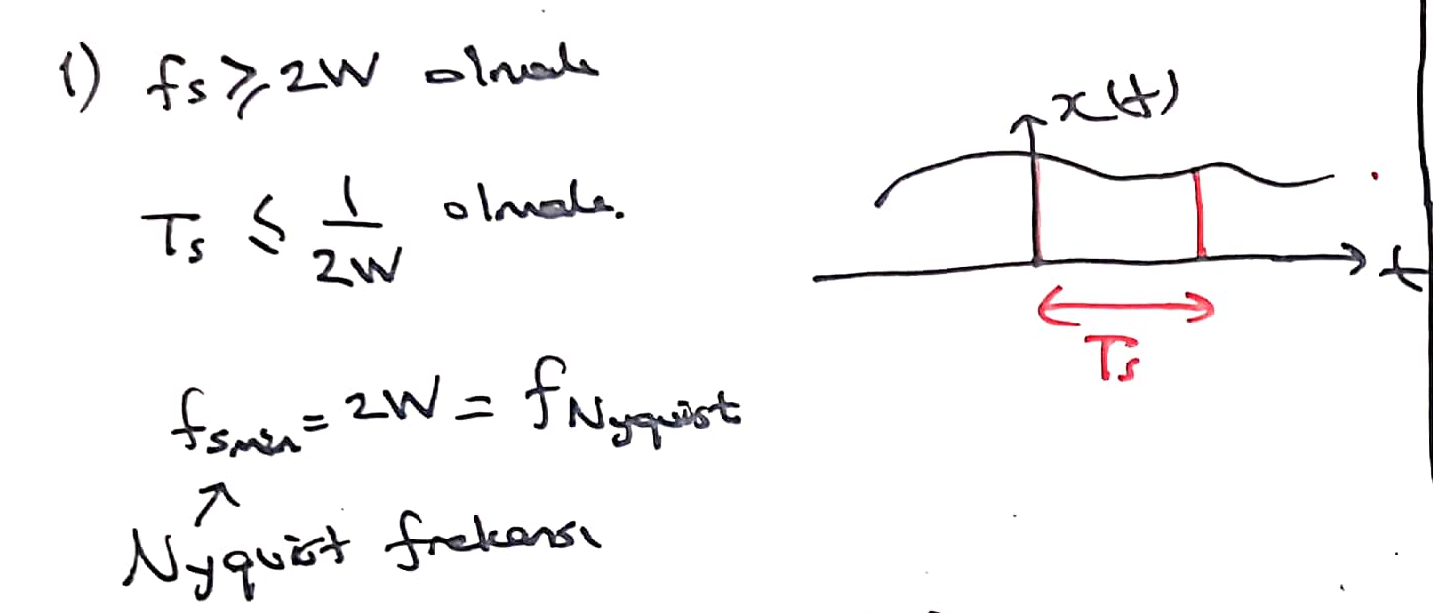 1) fs ≥ 2W olmalı
x(t)
Ts ≤ 1/2W olmalı.
t
Ts
fsmin = 2W = fNyquist
↑
Nyquist frekansı